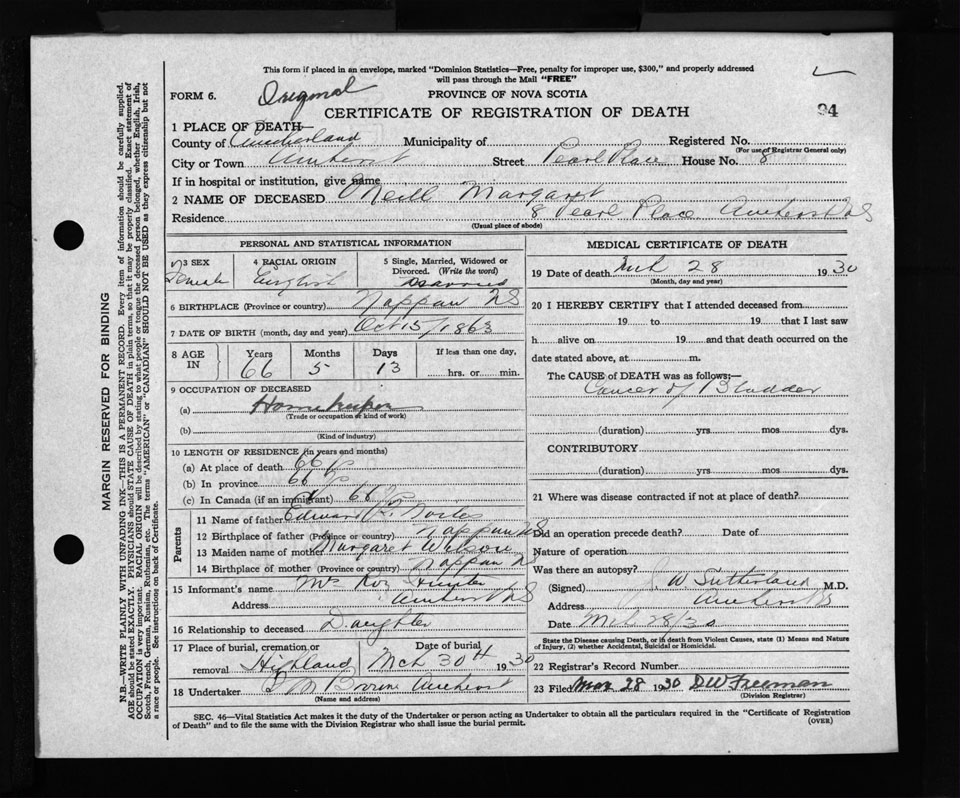 This form if placed in an envelope, marked "Dominion Statistics—Free, penalty for improper use, $300," and properly addressed
will pass through the Mail "FREE"
FORM 6. Original PROVINCE OF NOVA SCOTIA
CERTIFICATE OF REGISTRATION OF DEATH 94
1 PLACE OF DEATH—
County of Cumberland Municipality of Registered No.
(For use of Registrar General only)
City or Town Amherst Street Pearl Place House No. 8
If in hospital or institution, give name
2 NAME OF DECEASED O'Neill Margaret
Residence 8 Pearl Place Amherst NS
(Usual place of abode)
PERSONAL AND STATISTICAL INFORMATION
3 SEX 4 RACIAL ORIGIN 5 Single, Married, Widowed or
Divorced. (Write the word)
Female English Married
6 BIRTHPLACE (Province or country) Nappan NS
7 DATE OF BIRTH (month, day and year) Oct 15/1863
8 AGE IN Years Months Days If less than one day,
66 5 13 hrs. or min.
9 OCCUPATION OF DECEASED
(a) Housekeeper
(Trade or occupation or kind of work)
(b)
(Kind of industry)
10 LENGTH OF RESIDENCE (in years and months)
(a) At place of death 66
(b) In province 66
(c) In Canada (if an immigrant) 66
Parents
11 Name of father Edward
12 Birthplace of father (Province or country) Nappan NS
13 Maiden name of mother Margaret Wilson
14 Birthplace of mother (Province or country) Nappan
15 Informant's name Mrs Roy Hunter
Address Amherst NS
16 Relationship to deceased Daughter
17 Place of burial, cremation or Date of burial
removal Highland Mch 30th 1930
18 Undertaker Amherst
(Name and address)
MEDICAL CERTIFICATE OF DEATH
19 Date of death Mch 28 1930
(Month, day and year)
20 I HEREBY CERTIFY that I attended deceased from
19 to 19 that I last saw
h alive on 19 and that death occurred on the
date stated above, at m.
The CAUSE of DEATH was as follows:—
Cancer of Bladder
(duration) yrs mos dys.
CONTRIBUTORY
(duration) yrs mos dys.
21 Where was disease contracted if not at place of death?
Did an operation precede death? Date of
Nature of operation
Was there an autopsy?
(Signed) J W Sutherland M.D.
Address Amherst NS
Date Mch 28/30
State the Disease causing Death, or in death from Violent Causes, state (1) Means and Nature
of Injury, (2) whether Accidental, Suicidal or Homicidal.
22 Registrar's Record Number
23 Filed Mar 28 1930 D W Freeman
(Division Registrar)
SEC. 46—Vital Statistics Act makes it the duty of the Undertaker or person acting as Undertaker to obtain all the particulars required in the "Certificate of Registration
of Death" and to file the same with the Division Registrar who shall issue the burial permit. (OVER)
MARGIN RESERVED FOR BINDING
N.B.—WRITE PLAINLY WITH UNFADING INK—THIS IS A PERMANENT RECORD. Every item of information should be carefully supplied.
AGE should be stated EXACTLY. PHYSICIANS should STATE CAUSE OF DEATH in plain terms, so that it may be properly classified. Exact statement of
OCCUPATION is very important. RACIAL ORIGIN will be described by stating to what people or tongue the deceased person belonged, whether English, Irish,
Scotch, French, German, Russian, Ruthenian, etc. The terms "AMERICAN" or "CANADIAN" SHOULD NOT BE USED as they express citizenship but not
a race or people. See instructions on back of Certificate.